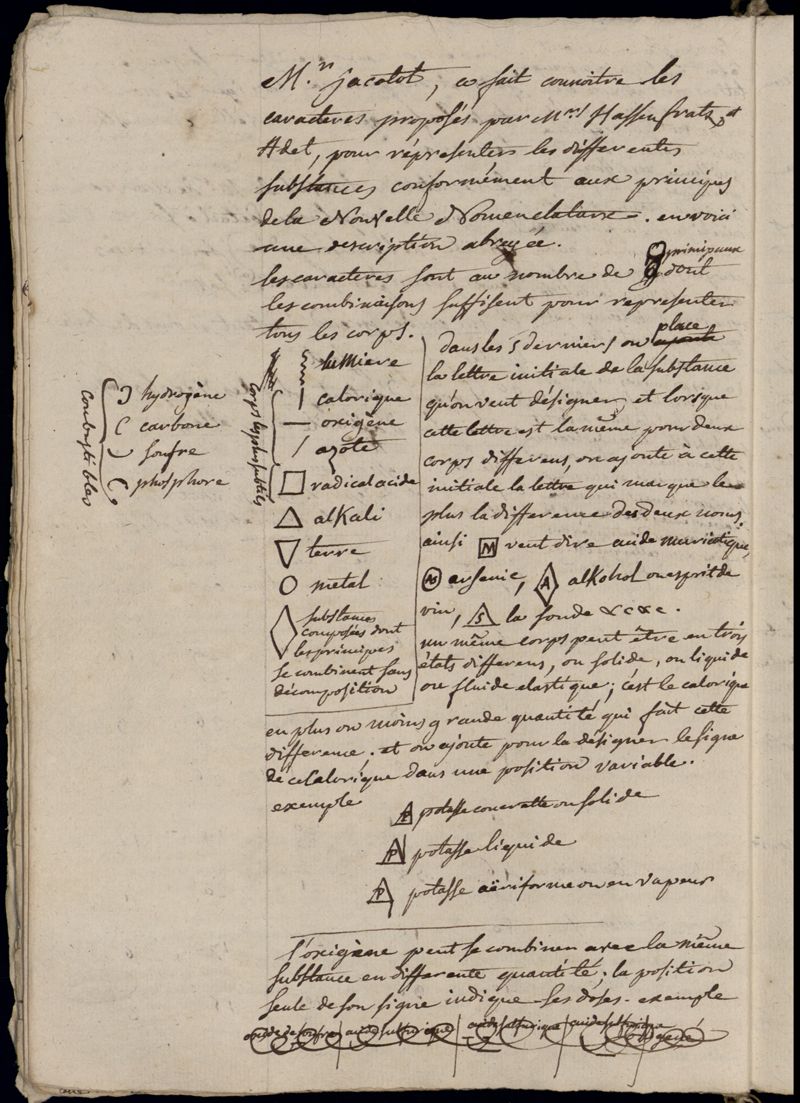 M.r jacotot, a fait connoitre les
caracteres proposés par M.rs Hassenfratz et
Adet, pour réprésenter les differentes
substances conformément aux principes
de la Nouvelle Nomenclature. en voici
une description abregée.
principaux
les caracteres sont au nombre de 8 dont
les combinaisons suffisent pour representer
tous les corps.
lumiere
calorique
oxigène
azote
radical acide
alKali
terre
metal
substances
composées dont
les principes
se combinent sans
décomposition
hydrogène
carbone
soufre
phosphore
Combustibles
place
dans les 5 derniers on
la lettre initiale de la substance
qu'on veut désigner, et lorsque
cette lettre est la même pour deux
corps differens, on ajoute à cette
initiale la lettre qui marque le
plus la difference des deux noms.
ainsi M veut dire acide muriatique,
As arsenic, A alkohol ou esprit de
vin, S la soude &c &c.
un même corps peut être en trois
états differens, ou solide, ou liquide
ou fluide elastique; c'est le calorique
en plus ou moins grande quantité qui fait cette
difference. et on ajoute pour la désigner le signe
de ce Calorique dans une position variable.
exemple
P potasse concrette ou solide
P potasse liquide
P potasse aëriforme ou en vapeur
l'oxigène peut se combiner avec la même
substance en differente quantité; la position
seule de son signe indique ses doses. exemple